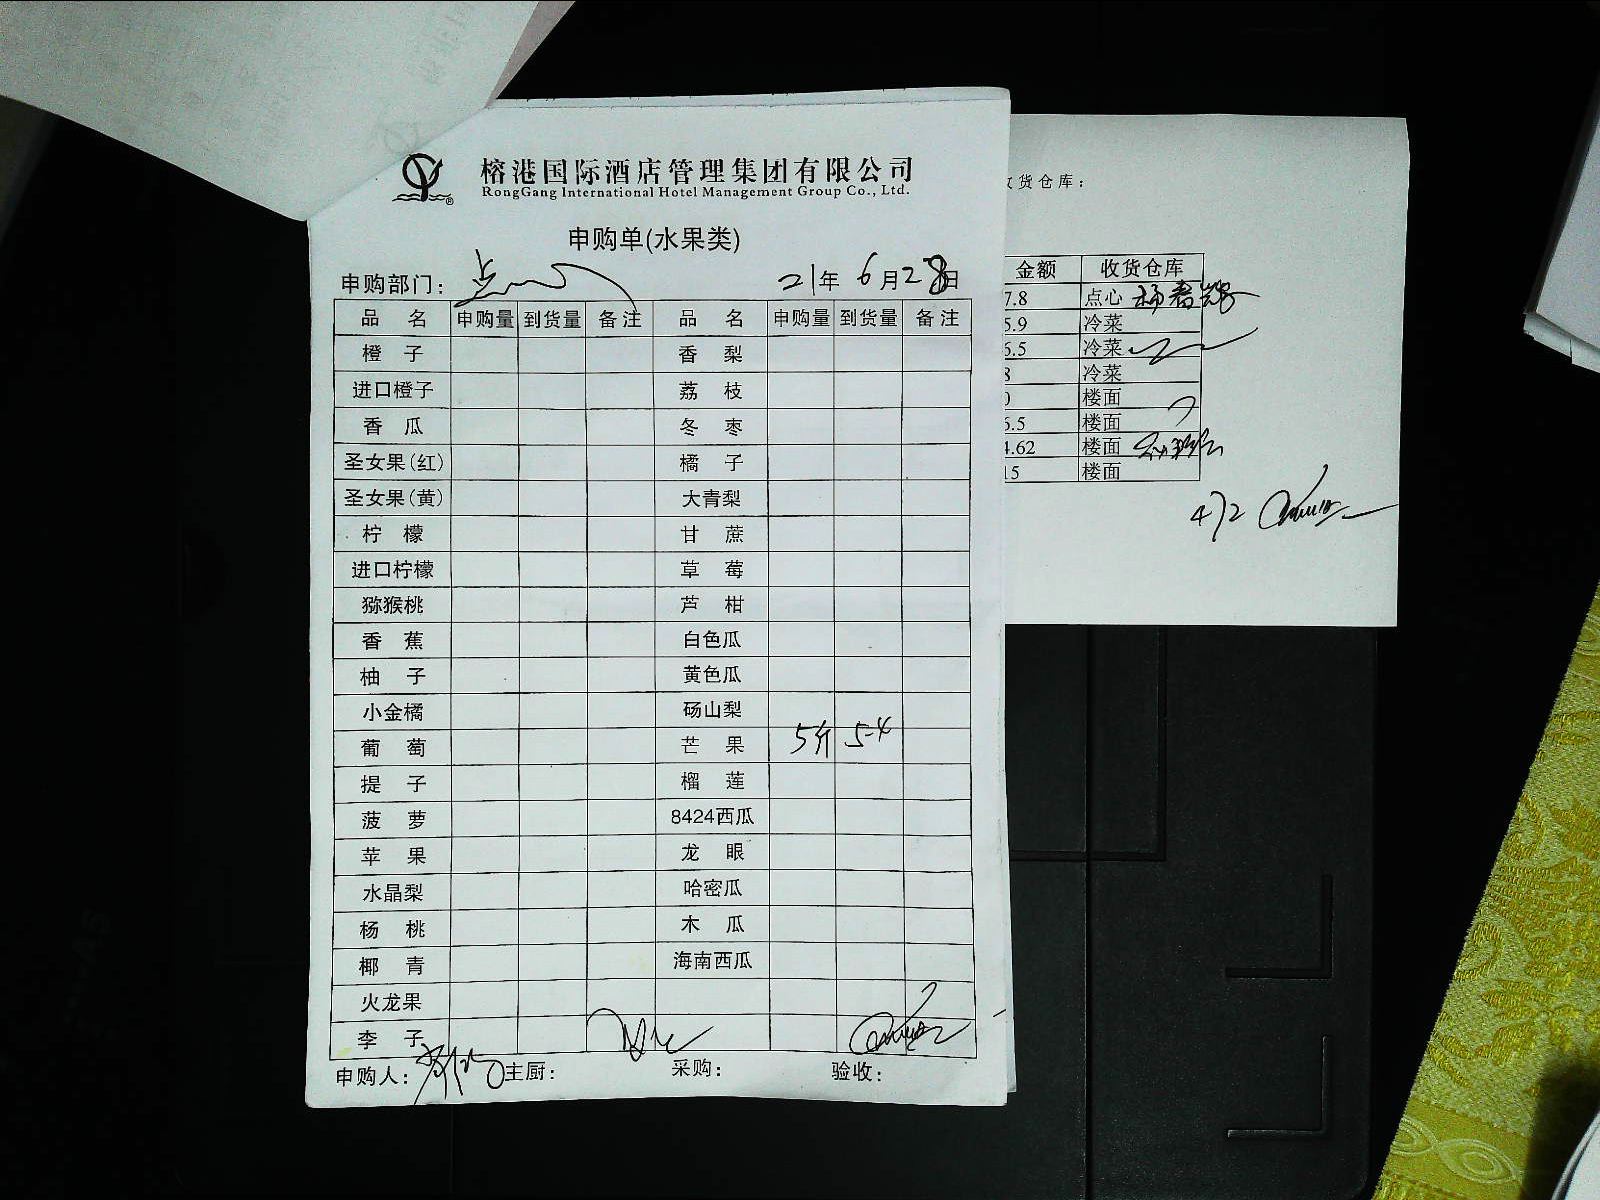 榕港国际酒店管理集团有限公司
RongGang International Hotel Management Group Co., Ltd.
®
申购单(水果类)
申购部门: 点心 21年 6月28日
品 名 申购量 到货量 备注 品 名 申购量 到货量 备注
橙 子 香 梨
进口橙子 荔 枝
香 瓜 冬 枣
圣女果(红) 橘 子
圣女果(黄) 大青梨
柠 檬 甘 蔗
进口柠檬 草 莓
猕猴桃 芦 柑
香 蕉 白色瓜
柚 子 黄色瓜
小金橘 砀山梨
葡 萄 芒 果 5斤 5-4
提 子 榴 莲
菠 萝 8424西瓜
苹 果 龙 眼
水晶梨 哈密瓜
杨 桃 木 瓜
椰 青 海南西瓜
火龙果
李 子
申购人: 主厨: 采购: 验收:
货仓库:
金额 收货仓库
7.8 点心
5.9 冷菜
6.5 冷菜
8 冷菜
0 楼面
6.5 楼面
4.62 楼面
15 楼面
472